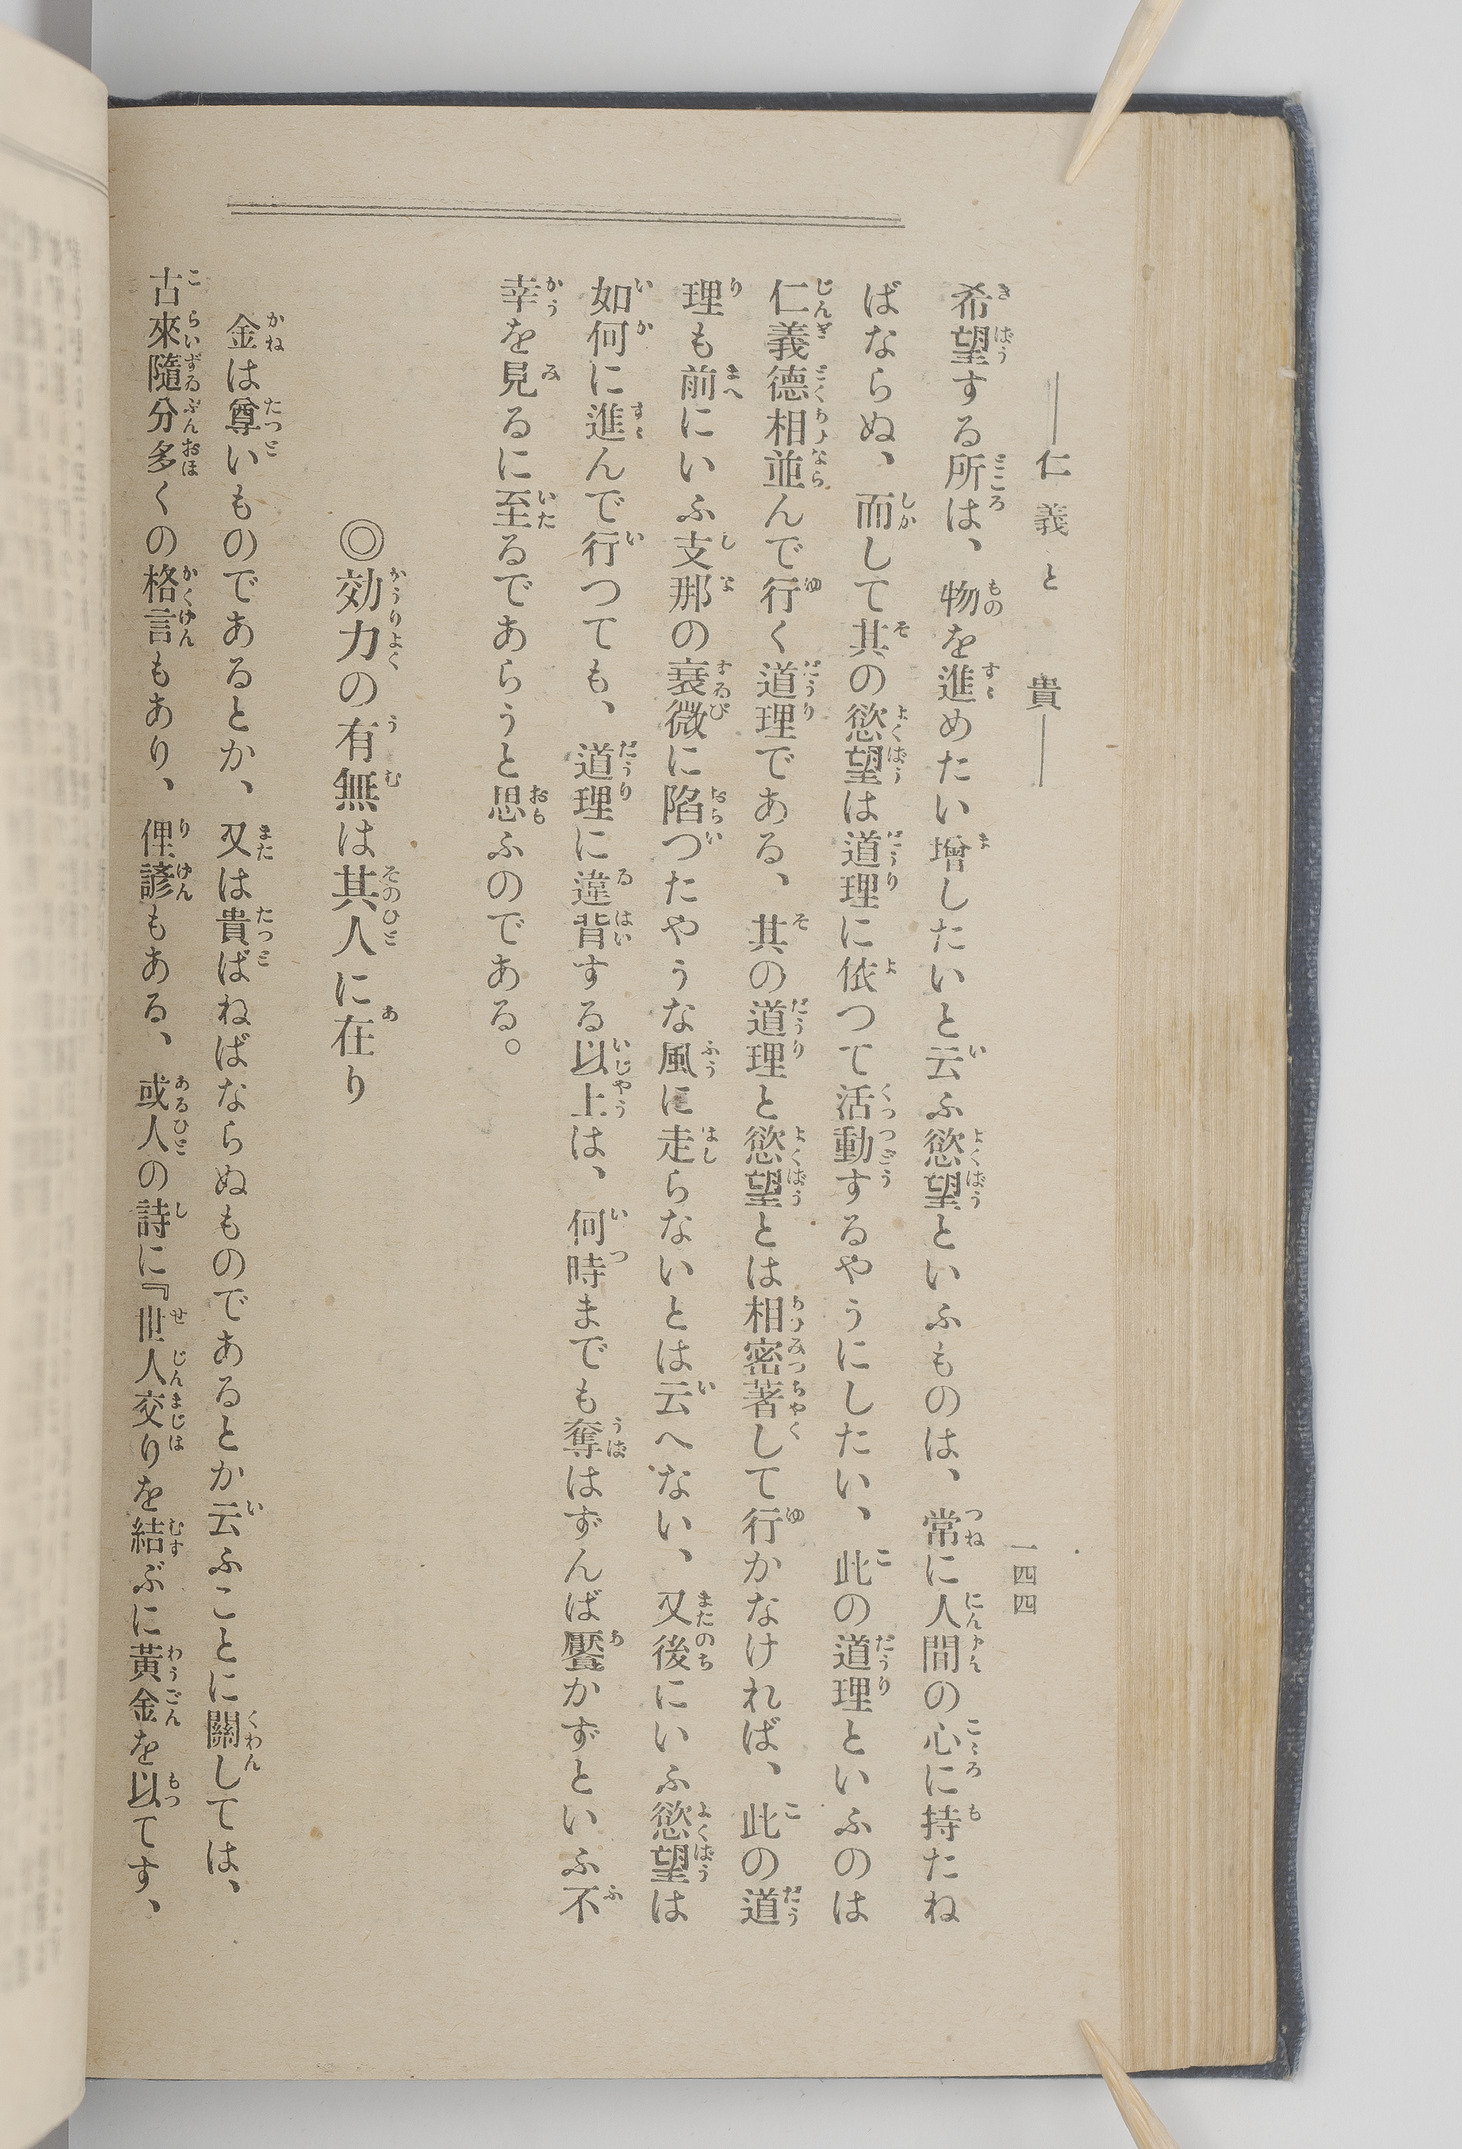 仁義と富貴
一四四
希望する所は、物を進めたい增したいと云ふ慾望といふものは、常に人間の心に持たね
ばならぬ、而して其の慾望は道理に依つて活動するやうにしたい、此の道理といふのは
仁義德相並んで行く道理である、其の道理と慾望とは相密著して行かなければ、此の道
理も前にいふ支那の衰微に陷つたやうな風に走らないとは云へない、又後にいふ慾望は
如何に進んで行つても、道理に違背する以上は、何時までも奪はずんば饜かずといふ不
幸を見るに至るであらうと思ふのである。
◎効力の有無は其人に在り
金は尊いものであるとか、又は貴ばねばならぬものであるとか云ふことに關しては、
古來隨分多くの格言もあり、俚諺もある、或人の詩に『世人交りを結ぶに黃金を以てす、